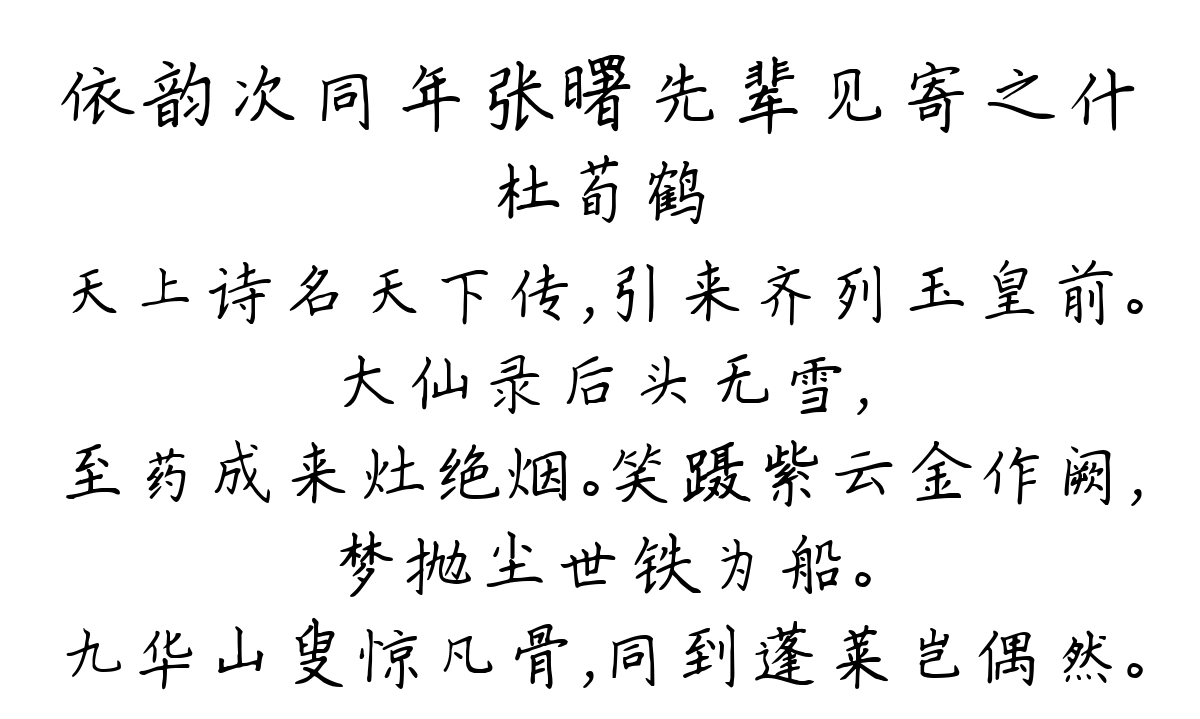 依韵次同年张曙先辈见寄之什
杜荀鹤
天上诗名天下传,引来齐列玉皇前。
大仙录后头无雪,
至药成来灶绝烟。笑蹑紫云金作阙,
梦抛尘世铁为船。
九华山叟惊凡骨,同到蓬莱岂偶然。